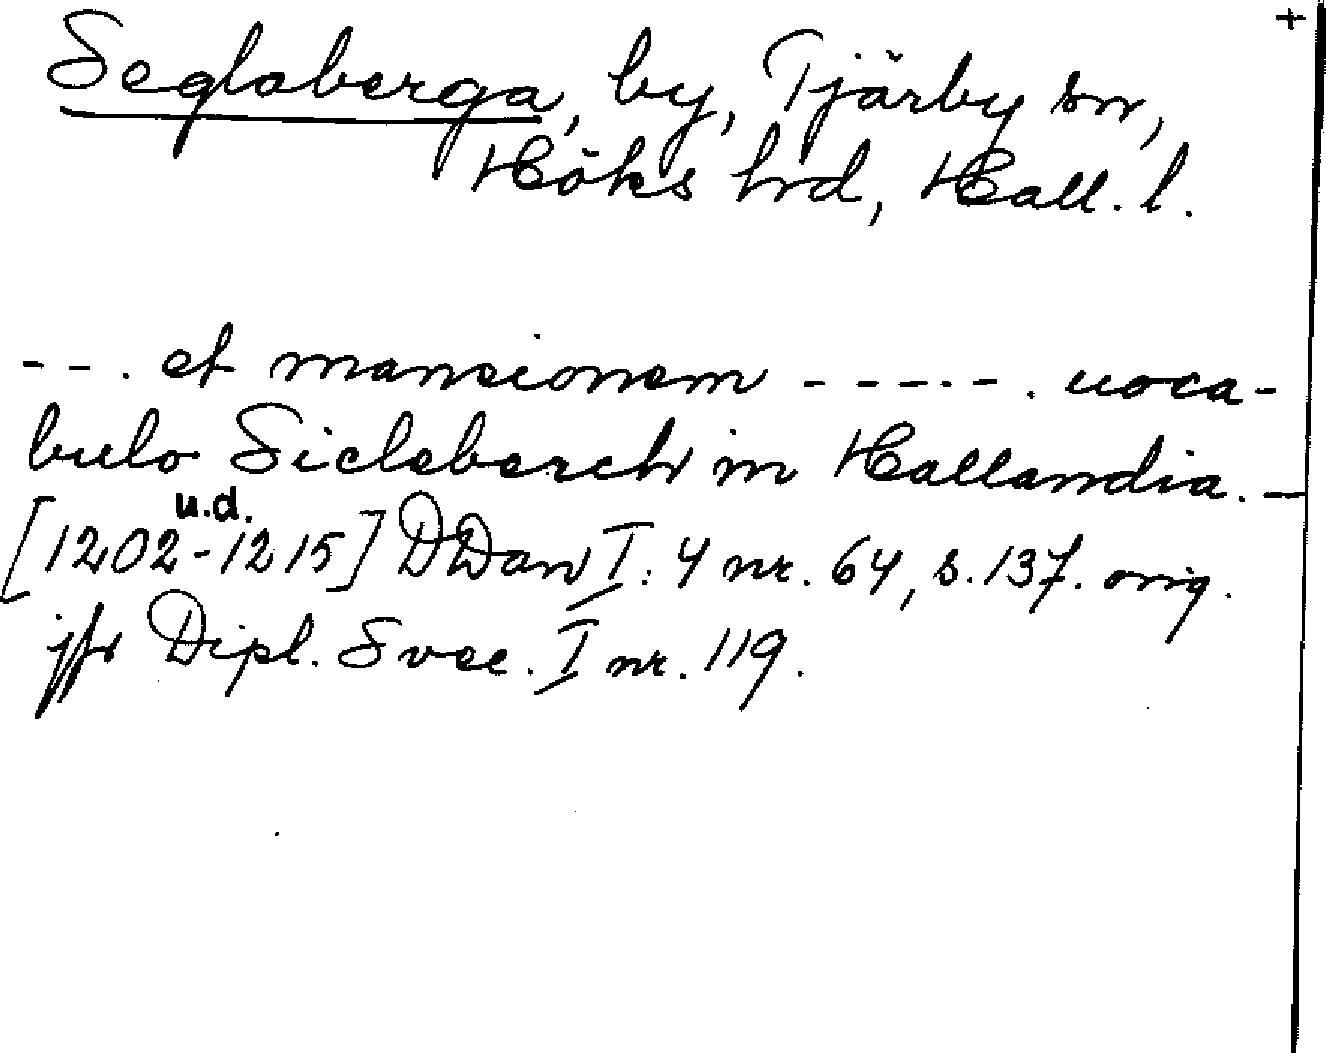 +
Segloberga, by, Tjärby sn,
Höks hrd, Hall. l.
--. et mansionem -----. uoca-
bulo Sicleberch in Hallandia. -
u.d.
[1202-1215] DDan I:4 nr. 64, s. 137. orig.
jfr Dipl. Svec. I nr. 119.